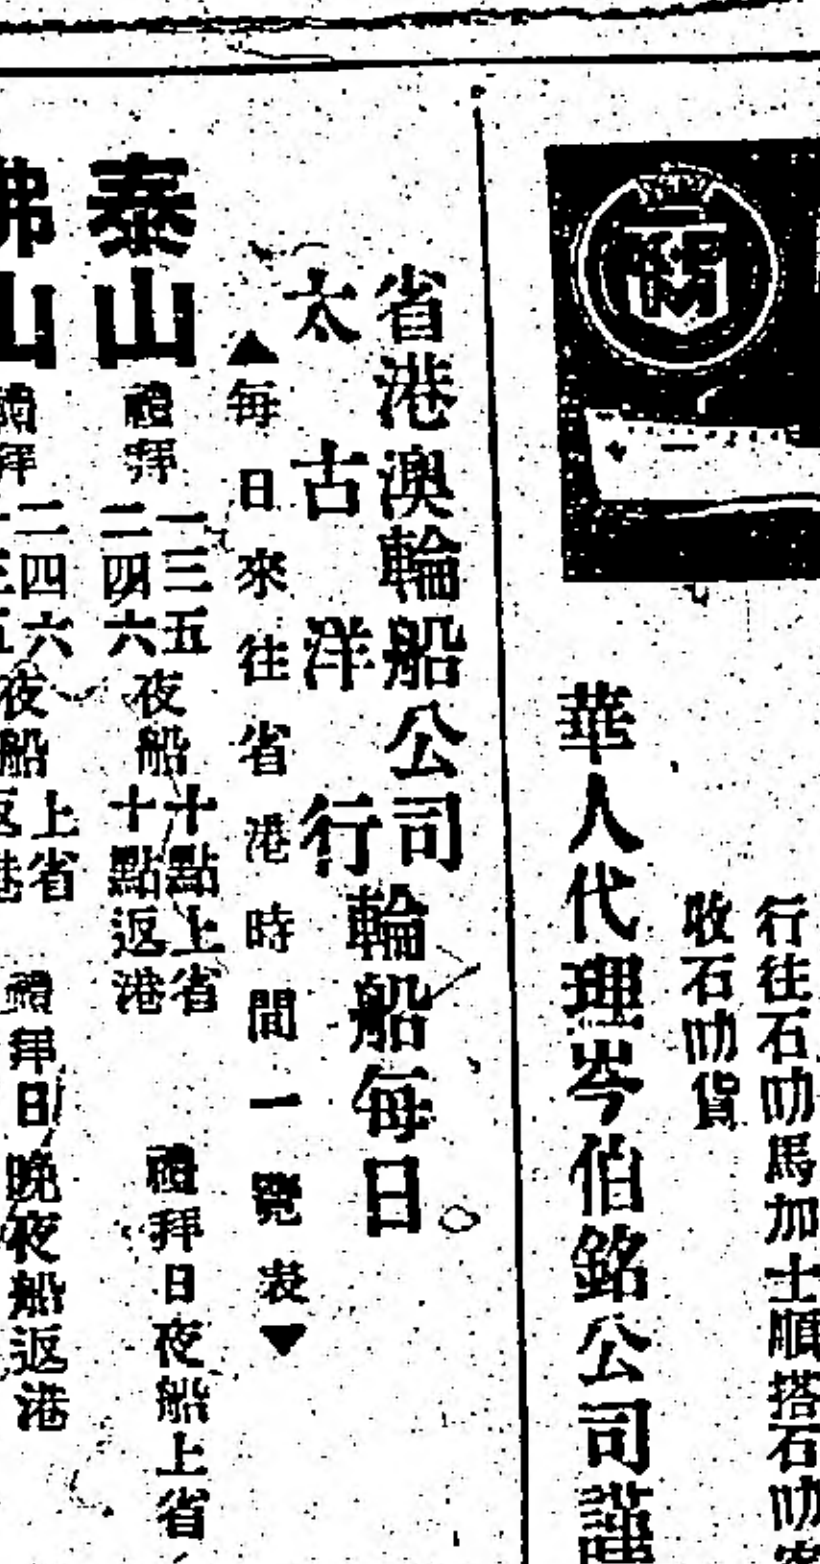 行往石叻馬加士順搭石叻
收石叻貨
華人代理岑伯銘公司謹
省港澳輪船公司
太古洋行
輪船每日
▲每日來往省港時間一覽表▼
泰山
禮拜
一三五
二四六
夜船
十點上省
十點返港
禮拜日夜船上省
佛山
禮拜
二四六
一三五
夜船
上省
返港
禮拜日晚夜船返港